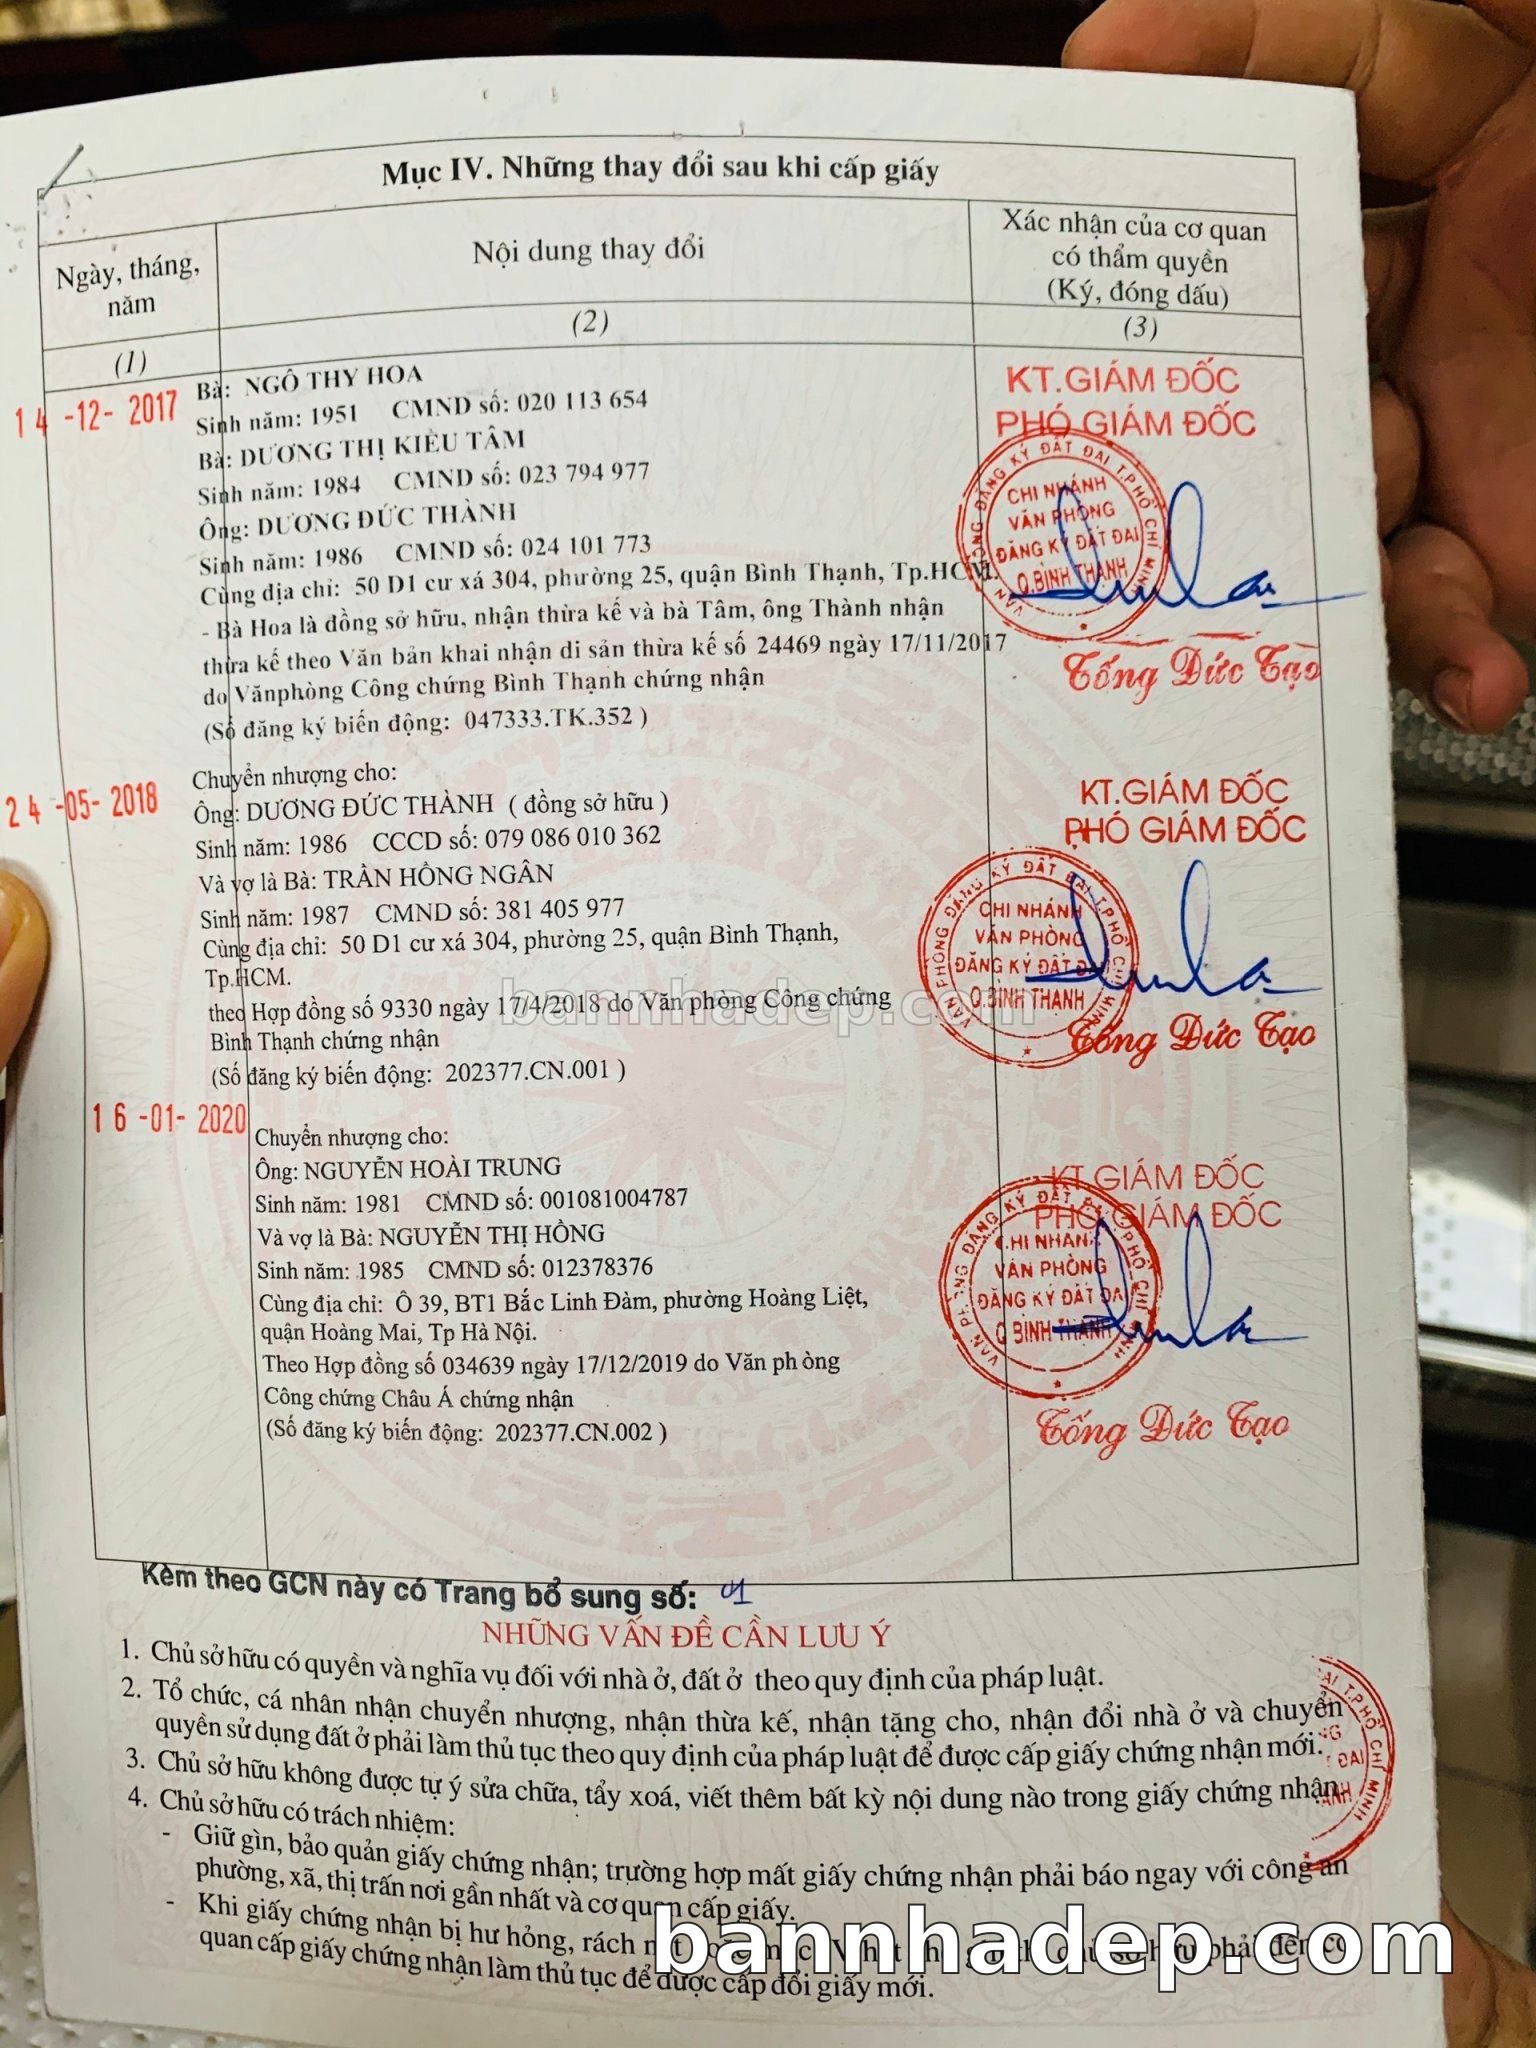 Mục IV. Những thay đổi sau khi cấp giấy
Ngày, tháng,
năm
Nội dung thay đổi
Xác nhận của cơ quan
có thẩm quyền
(Ký, đóng dấu)
(1)
(2)
(3)
14 -12- 2017
Bà: NGÔ THY HOA
Sinh năm: 1951 CMND số: 020 113 654
Bà: DƯƠNG THỊ KIỀU TÂM
Sinh năm: 1984 CMND số: 023 794 977
Ông: DƯƠNG ĐỨC THÀNH
Sinh năm: 1986 CMND số: 024 101 773
Cùng địa chỉ: 50 D1 cư xá 304, phường 25, quận Bình Thạnh, Tp.HCM.
- Bà Hoa là đồng sở hữu, nhận thừa kế và bà Tâm, ông Thành nhận
thừa kế theo Văn bản khai nhận di sản thừa kế số 24469 ngày 17/11/2017
do Vănphòng Công chứng Bình Thạnh chứng nhận
(Số đăng ký biến động: 047333.TK.352 )
KT.GIÁM ĐỐC
PHÓ GIÁM ĐỐC
VĂN PHÒNG ĐĂNG KÝ ĐẤT ĐAI T.PHỐ CHÍ MINH
CHI NHÁNH
VĂN PHÒNG
ĐĂNG KÝ ĐẤT ĐAI
Q.BÌNH THẠNH
Tống Đức Tạo
24 -05- 2018
Chuyển nhượng cho:
Ông: DƯƠNG ĐỨC THÀNH ( đồng sở hữu )
Sinh năm: 1986 CCCD số: 079 086 010 362
Và vợ là Bà: TRẦN HỒNG NGÂN
Sinh năm: 1987 CMND số: 381 405 977
Cùng địa chỉ: 50 D1 cư xá 304, phường 25, quận Bình Thạnh,
Tp.HCM.
theo Hợp đồng số 9330 ngày 17/4/2018 do Văn phòng Công chứng
Bình Thạnh chứng nhận
(Số đăng ký biến động: 202377.CN.001 )
KT.GIÁM ĐỐC
PHÓ GIÁM ĐỐC
VĂN PHÒNG ĐĂNG KÝ ĐẤT ĐAI T.PHỐ CHÍ MINH
CHI NHÁNH
VĂN PHÒNG
ĐĂNG KÝ ĐẤT ĐAI
Q.BÌNH THẠNH
Tống Đức Tạo
bannhadep.com
16 -01- 2020
Chuyển nhượng cho:
Ông: NGUYỄN HOÀI TRUNG
Sinh năm: 1981 CMND số: 001081004787
Và vợ là Bà: NGUYỄN THỊ HỒNG
Sinh năm: 1985 CMND số: 012378376
Cùng địa chỉ: Ô 39, BT1 Bắc Linh Đàm, phường Hoàng Liệt,
quận Hoàng Mai, Tp Hà Nội.
Theo Hợp đồng số 034639 ngày 17/12/2019 do Văn ph òng
Công chứng Châu Á chứng nhận
(Số đăng ký biến động: 202377.CN.002 )
KT.GIÁM ĐỐC
PHÓ GIÁM ĐỐC
VĂN PHÒNG ĐĂNG KÝ ĐẤT ĐAI T.PHỐ CHÍ MINH
CHI NHÁNH
VĂN PHÒNG
ĐĂNG KÝ ĐẤT ĐA
Q BÌNH THẠNH
Tống Đức Tạo
Kèm theo GCN này có Trang bổ sung số: 01
NHỮNG VẤN ĐỀ CẦN LƯU Ý
1. Chủ sở hữu có quyền và nghĩa vụ đối với nhà ở, đất ở theo quy định của pháp luật.
2. Tổ chức, cá nhân nhận chuyển nhượng, nhận thừa kế, nhận tặng cho, nhận đổi nhà ở và chuyển
quyền sử dụng đất ở phải làm thủ tục theo quy định của pháp luật để được cấp giấy chứng nhận mới.
3. Chủ sở hữu không được tự ý sửa chữa, tẩy xoá, viết thêm bất kỳ nội dung nào trong giấy chứng nhận.
4. Chủ sở hữu có trách nhiệm:
- Giữ gìn, bảo quản giấy chứng nhận; trường hợp mất giấy chứng nhận phải báo ngay với công an
phường, xã, thị trấn nơi gần nhất và cơ quan cấp giấy.
- Khi giấy chứng nhận bị hư hỏng, rách phải đến cơ
quan cấp giấy chứng nhận làm thủ tục để được cấp đổi giấy mới.
bannhadep.com